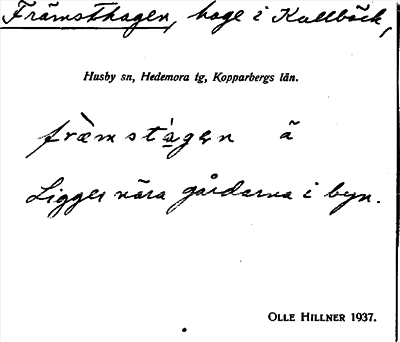 Främsthagen, hage i Kullböck,
Husby sn, Hedemora tg, Kopparbergs län.
fræ̀mst'a̲gen ä
Ligger nära gårdarna i byn.
OLLE HILLNER 1937.